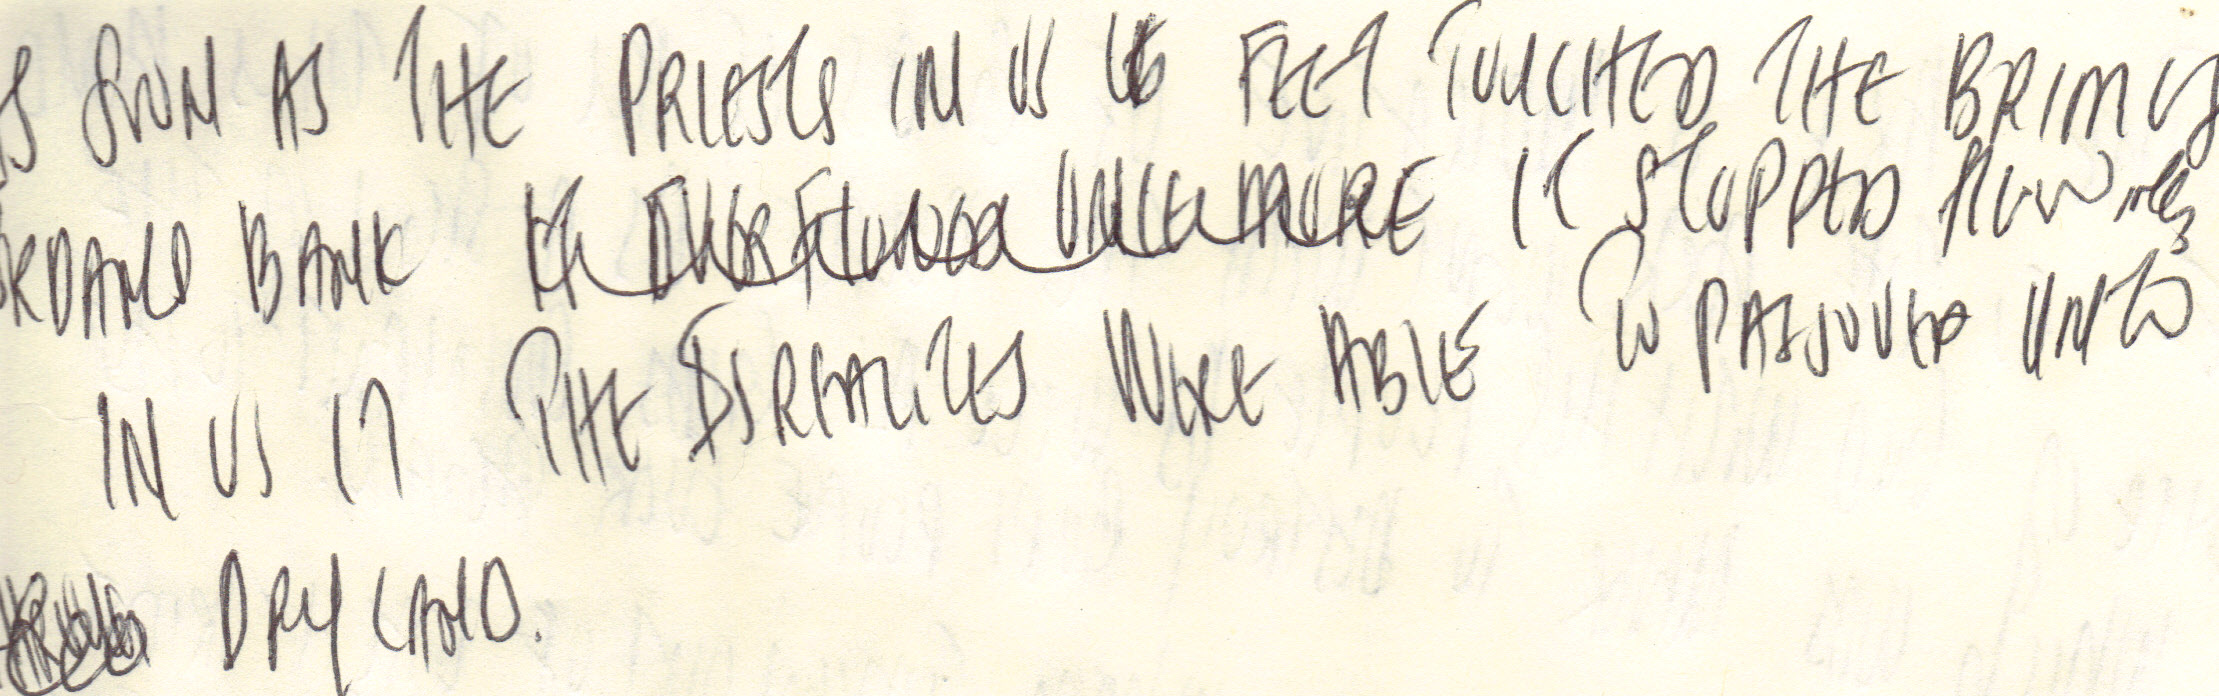 S SOON AS THE PRIESTS IN US FEET TOUCHED THE BRIM OF
RDANS BANK IT OVERFLOWED ONCE MORE IT STOPPED FLOWING
IN US IT THE ISREALITES WERE ABLE TO PASSOVER UNTO
DRY LAND.